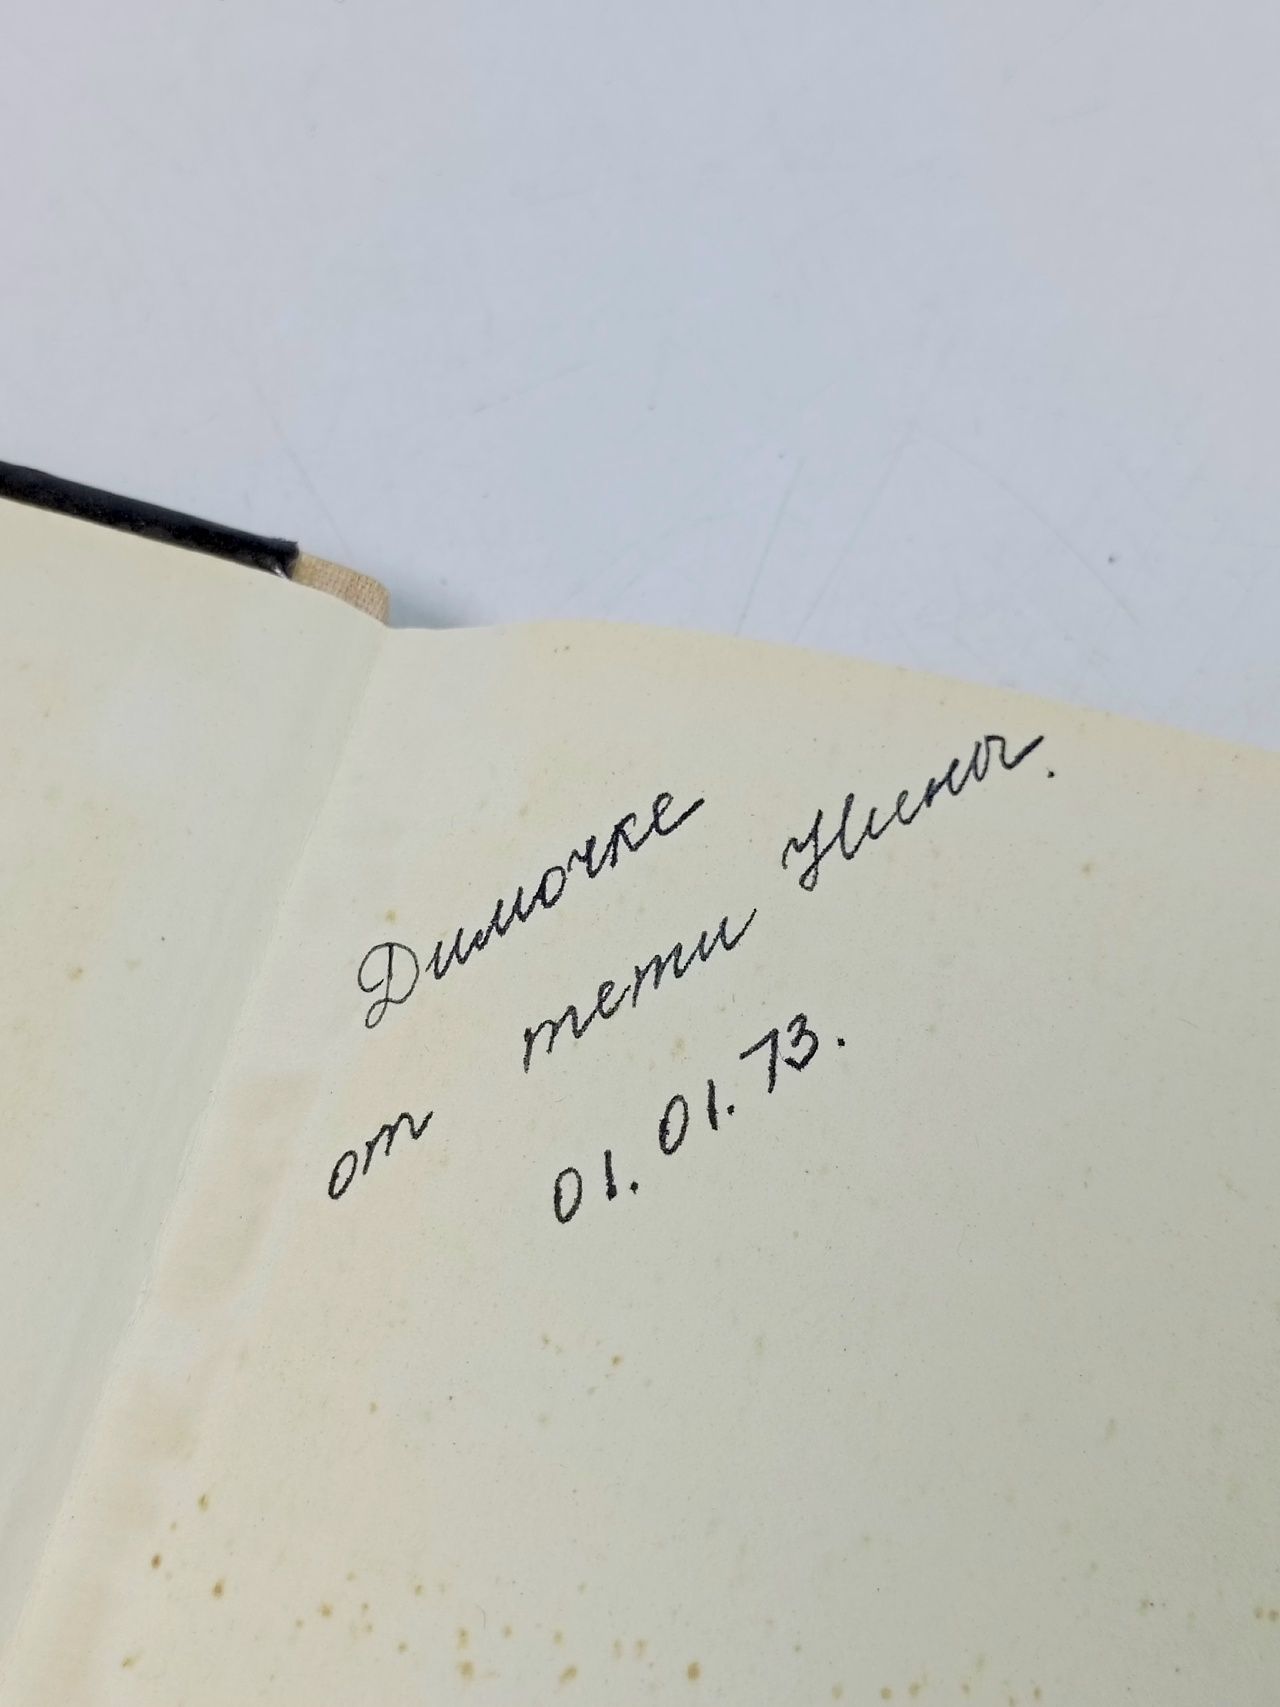 Димочке
от тети Нины.
01.01.73.